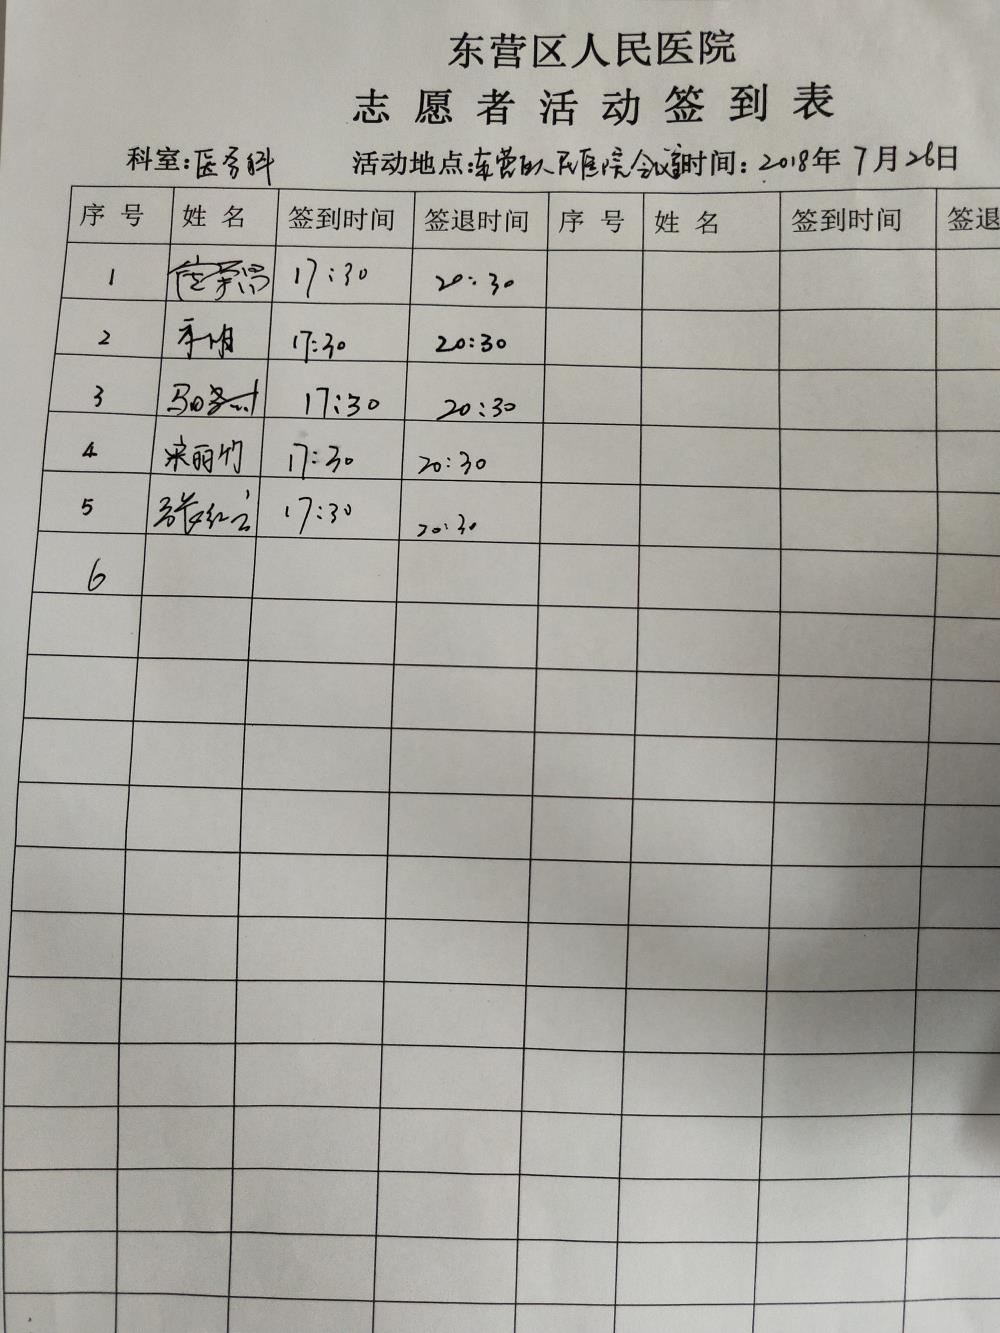 东营区人民医院
志愿者活动签到表
科室:医务科 活动地点:东营区人民医院会议室 时间:2018年7月26日
序号 姓名 签到时间 签退时间 序号 姓名 签到时间 签退
1 17:30 20:30
2 17:30 20:30
3 17:30 20:30
4 宋丽竹 17:30 20:30
5 17:30 20:30
6